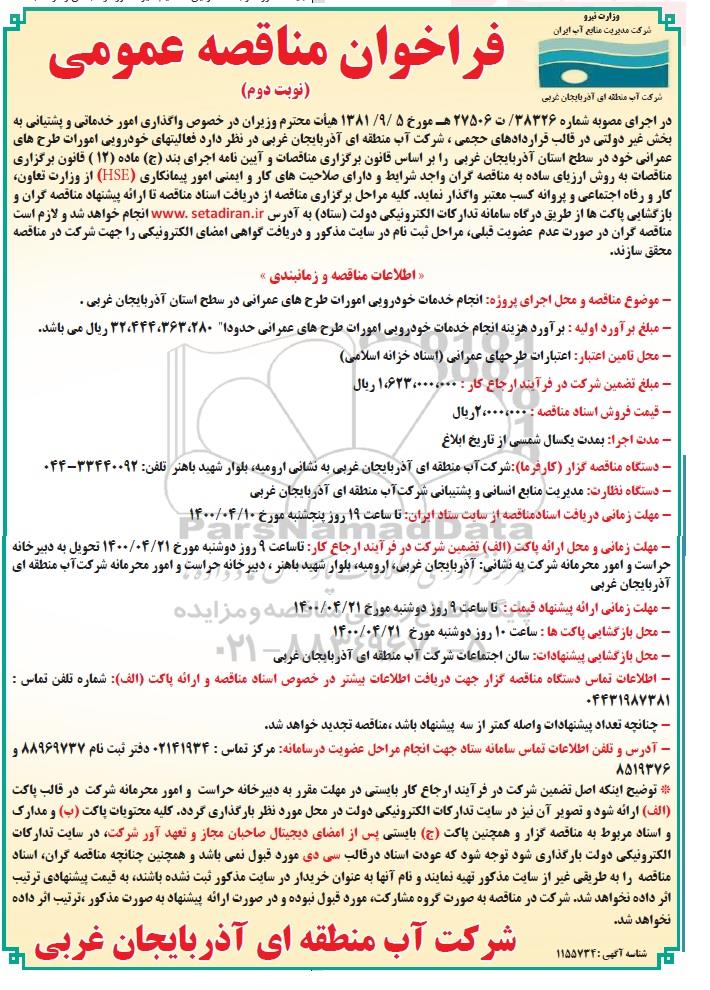 وزارت نیرو
شرکت مدیریت منابع آب ایران
شرکت آب منطقه ای آذربایجان غربی
فراخوان مناقصه عمومی
(نوبت دوم)
در اجرای مصوبه شماره ۳۸۳۲۶/ ت ۲۷۵۰۶ هـ مورخ ۵ /۹/ ۱۳۸۱ هیأت محترم وزیران در خصوص واگذاری امور خدماتی و پشتیانی به
بخش غیر دولتی در قالب قراردادهای حجمی ، شرکت آب منطقه ای آذربایجان غربی در نظر دارد فعالیتهای خودرویی امورات طرح های
عمرانی خود در سطح استان آذربایجان غربی را بر اساس قانون برگزاری مناقصات و آیین نامه اجرای بند (ج) ماده (۱۲ ) قانون برگزاری
مناقصات به روش ارزیای ساده به مناقصه گران واجد شرایط و دارای صلاحیت های کار و ایمنی امور پیمانکاری (HSE) از وزارت تعاون،
کار و رفاه اجتماعی و پروانه کسب معتبر واگذار نماید. کلیه مراحل برگزاری مناقصه از دریافت اسناد مناقصه تا ارائه پیشنهاد مناقصه گران و
بازگشایی پاکت ها از طریق درگاه سامانه تدارکات الکترونیکی دولت (ستاد) به آدرس www. setadiran.ir انجام خواهد شد و لازم است
مناقصه گران در صورت عدم عضویت قبلی، مراحل ثبت نام در سایت مذکور و دریافت گواهی امضای الکترونیکی را جهت شرکت در مناقصه
محقق سازند.
« اطلاعات مناقصه و زمانبندی »
– موضوع مناقصه و محل اجرای پروژه: انجام خدمات خودرویی امورات طرح های عمرانی در سطح استان آذربایجان غربی .
– مبلغ برآورد اولیه : برآورد هزینه انجام خدمات خودرویی امورات طرح های عمرانی حدودا" ۳۲،۴۴۴،۳۶۳،۲۸۰ ریال می باشد.
– محل تامین اعتبار: اعتبارات طرحهای عمرانی (اسناد خزانه اسلامی)
– مبلغ تضمین شرکت در فرآیند ارجاع کار : ۱،۶۲۳،۰۰۰،۰۰۰ ریال
– قیمت فروش اسناد مناقصه : ۲،۰۰۰،۰۰۰ریال
– مدت اجرا: بمدت یکسال شمسی از تاریخ ابلاغ
– دستگاه مناقصه گزار (کارفرما):شرکت آب منطقه ای آذربایجان غربی به نشانی ارومیه، بلوار شهید باهنر تلفن: ۳۳۴۴۰۰۹۲-۰۴۴
– دستگاه نظارت: مدیریت منابع انسانی و پشتیبانی شرکت آب منطقه ای آذربایجان غربی
– مهلت زمانی دریافت اسنادمناقصه از سایت ستاد ایران: تا ساعت ۱۹ روز پنجشنبه مورخ ۱۴۰۰/۰۴/۱۰
– مهلت زمانی و محل ارائه پاکت (الف) تضمین شرکت در فرآیند ارجاع کار: تاساعت ۹ روز دوشنبه مورخ ۱۴۰۰/۰۴/۲۱ تحویل به دبیرخانه
حراست و امور محرمانه شرکت به نشانی: آذربایجان غربی، ارومیه، بلوار شهید باهنر ، دبیرخانه حراست و امور محرمانه شرکت آب منطقه ای
آذربایجان غربی
– مهلت زمانی ارائه پیشنهاد قیمت : تا ساعت ۹ روز دوشنبه مورخ ۱۴۰۰/۰۴/۲۱
– محل بازگشایی پاکت ها : ساعت ۱۰ روز دوشنبه مورخ ۱۴۰۰/۰۴/۲۱
– محل بازگشایی پیشنهادات: سالن اجتماعات شرکت آب منطقه ای آذربایجان غربی
– اطلاعات تماس دستگاه مناقصه گزار جهت دریافت اطلاعات بیشتر در خصوص اسناد مناقصه و ارائه پاکت (الف): شماره تلفن تماس :
۰۴۴۳۱۹۸۷۳۸۱
– چنانچه تعداد پیشنهادات واصله کمتر از سه پیشنهاد باشد ،مناقصه تجدید خواهد شد.
– آدرس و تلفن اطلاعات تماس سامانه ستاد جهت انجام مراحل عضویت درسامانه: مرکز تماس : ۰۲۱۴۱۹۳۴ دفتر ثبت نام ۸۸۹۶۹۷۳۷ و
۸۵۱۹۳۷۶
* توضیح اینکه اصل تضمین شرکت در فرآیند ارجاع کار بایستی در مهلت مقرر به دبیرخانه حراست و امور محرمانه شرکت در قالب پاکت
(الف) ارائه شود و تصویر آن نیز در سایت تدارکات الکترونیکی دولت در محل مورد نظر بارگذاری گردد. کلیه محتویات پاکت (ب) و مدارک
و اسناد مربوط به مناقصه گزار و همچنین پاکت (ج) بایستی پس از امضای دیجیتال صاحبان مجاز و تعهد آور شرکت، در سایت تدارکات
الکترونیکی دولت بارگذاری شود توجه شود که عودت اسناد درقالب سی دی مورد قبول نمی باشد و همچنین چنانچه مناقصه گران، اسناد
مناقصه را به طریقی غیر از سایت مذکور تهیه نمایند و نام آنها به عنوان خریدار در سایت مذکور ثبت نشده باشند، به قیمت پیشنهادی ترتیب
اثر داده نخواهد شد. شرکت در مناقصه به صورت گروه مشارکت، مورد قبول نبوده و در صورت ارائه پیشنهاد به صورت مذکور ،ترتیب اثر داده
نخواهد شد.
شناسه آگهی : ۱۱۵۵۷۳۴
شرکت آب منطقه ای آذربایجان غربی
ParsNamadData
پایگاه اطلاع رسانی مناقصه و مزایده
۰۲۱-۸۸۳۴۹۶۷۰-۵